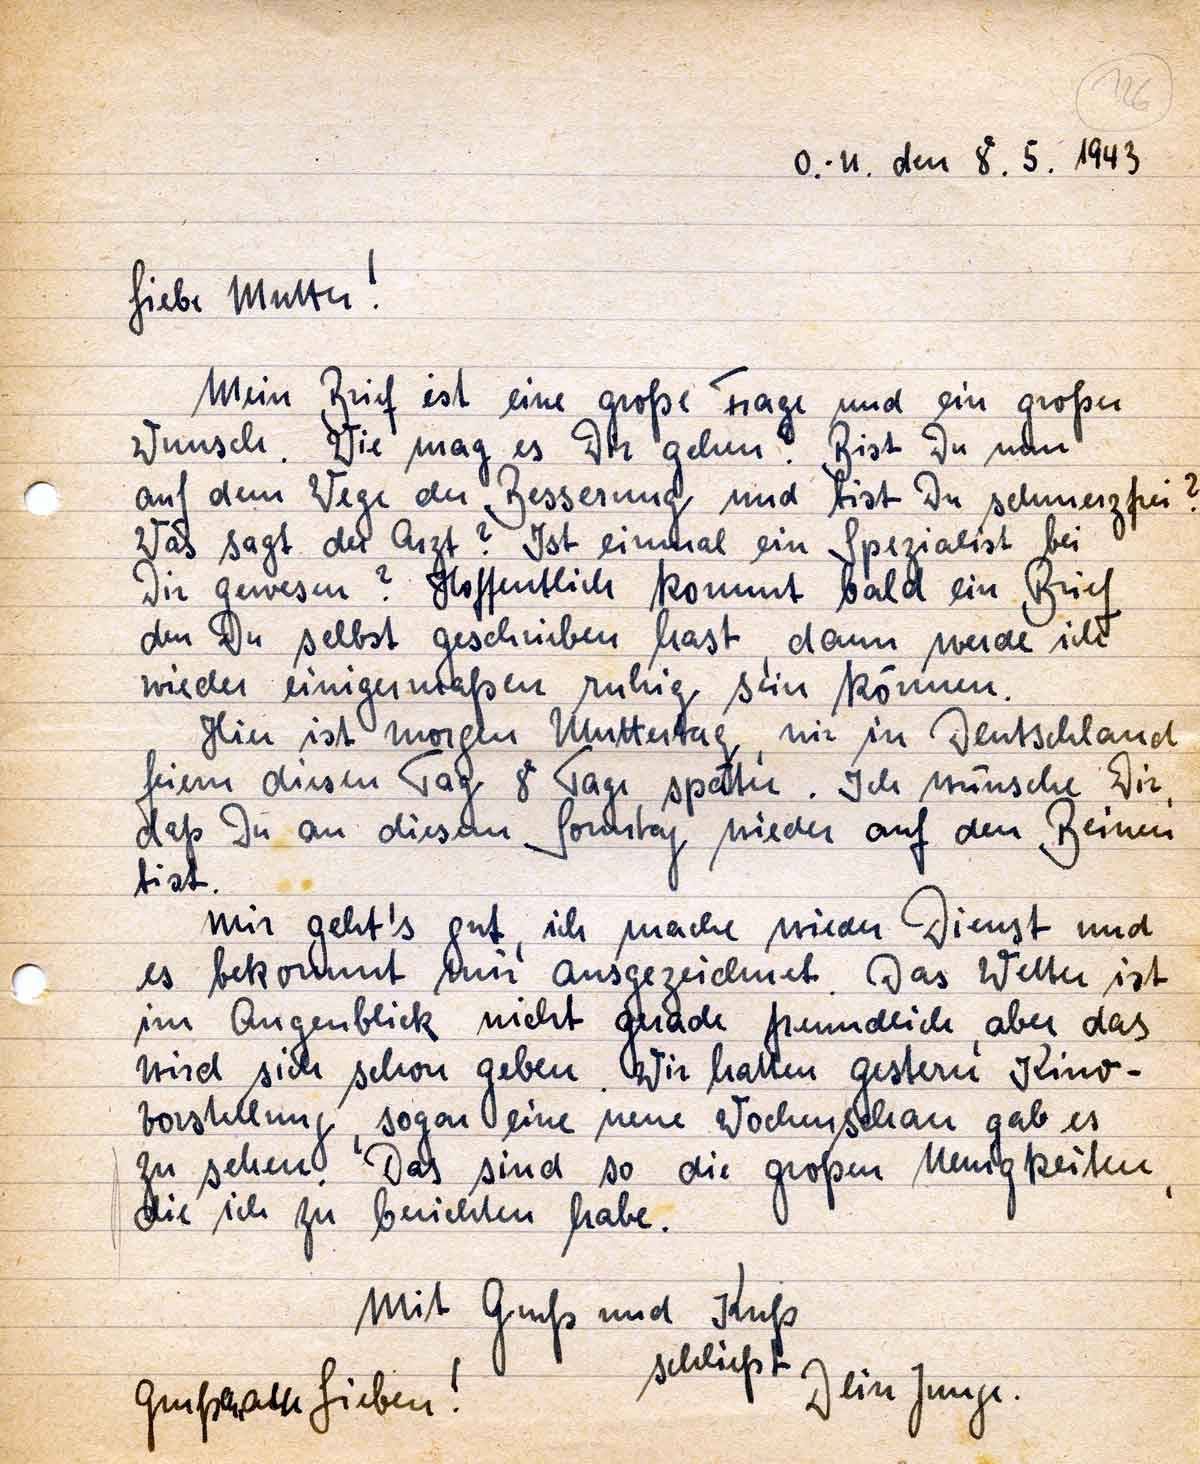 126
O.-U. den 8. 5. 1943
Liebe Mutter!
Mein Brief ist eine große Frage und ein großer
Wunsch. Wie mag es Dir gehen? Bist Du nun
auf dem Wege der Besserung und bist Du schmerzfrei?
Was sagt der Arzt? Ist einmal ein Spezialist bei
Dir gewesen? Hoffentlich kommt bald ein Brief
den Du selbst geschrieben hast, dann werde ich
wieder einigermaßen ruhig sein können.
Hier ist morgen Muttertag, wir in Deutschland
feiern diesen Tag 8 Tage später. Ich wünsche Dir,
daß Du an diesem Sonntag wieder auf den Beinen
bist.
Mir geht's gut, ich mache wieder Dienst und
es bekommt mir ausgezeichnet. Das Wetter ist
im Augenblick nicht gerade freundlich, aber das
wird sich schon geben. Wir hatten gestern Kino-
vorstellung, sogar eine neue Wochenschau gab es
zu sehen. Das sind so die großen Neuigkeiten,
die ich zu berichten habe.
Mit Gruß und Kuß
schließt Dein Junge.
Gruß alle Lieben!